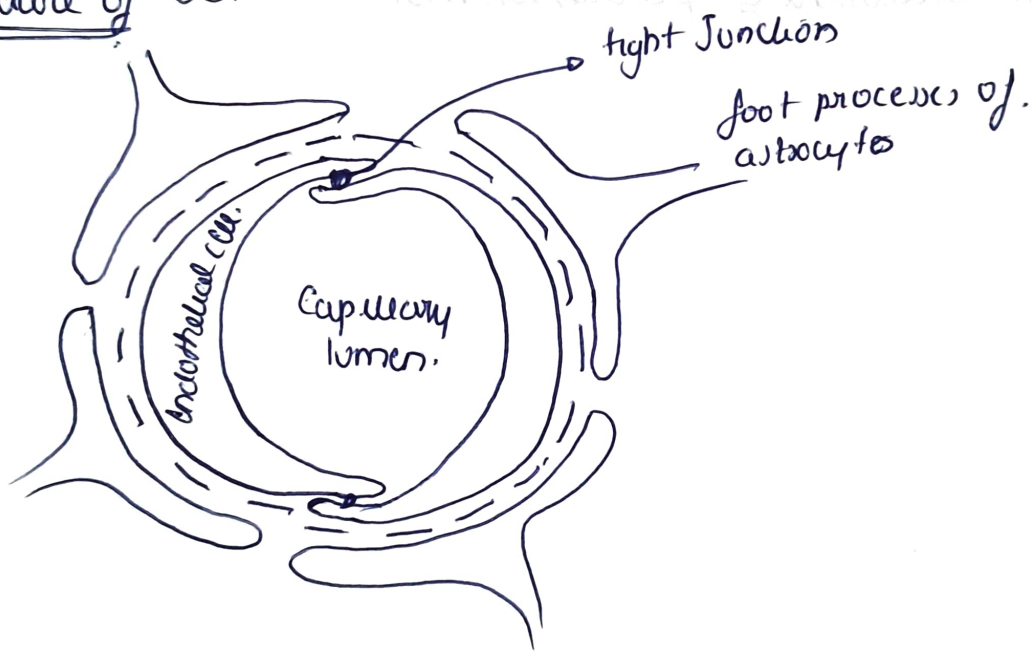 of
tight Junction
foot processes of.
astrocytes
Endothelical cell.
Capillary
lumen.